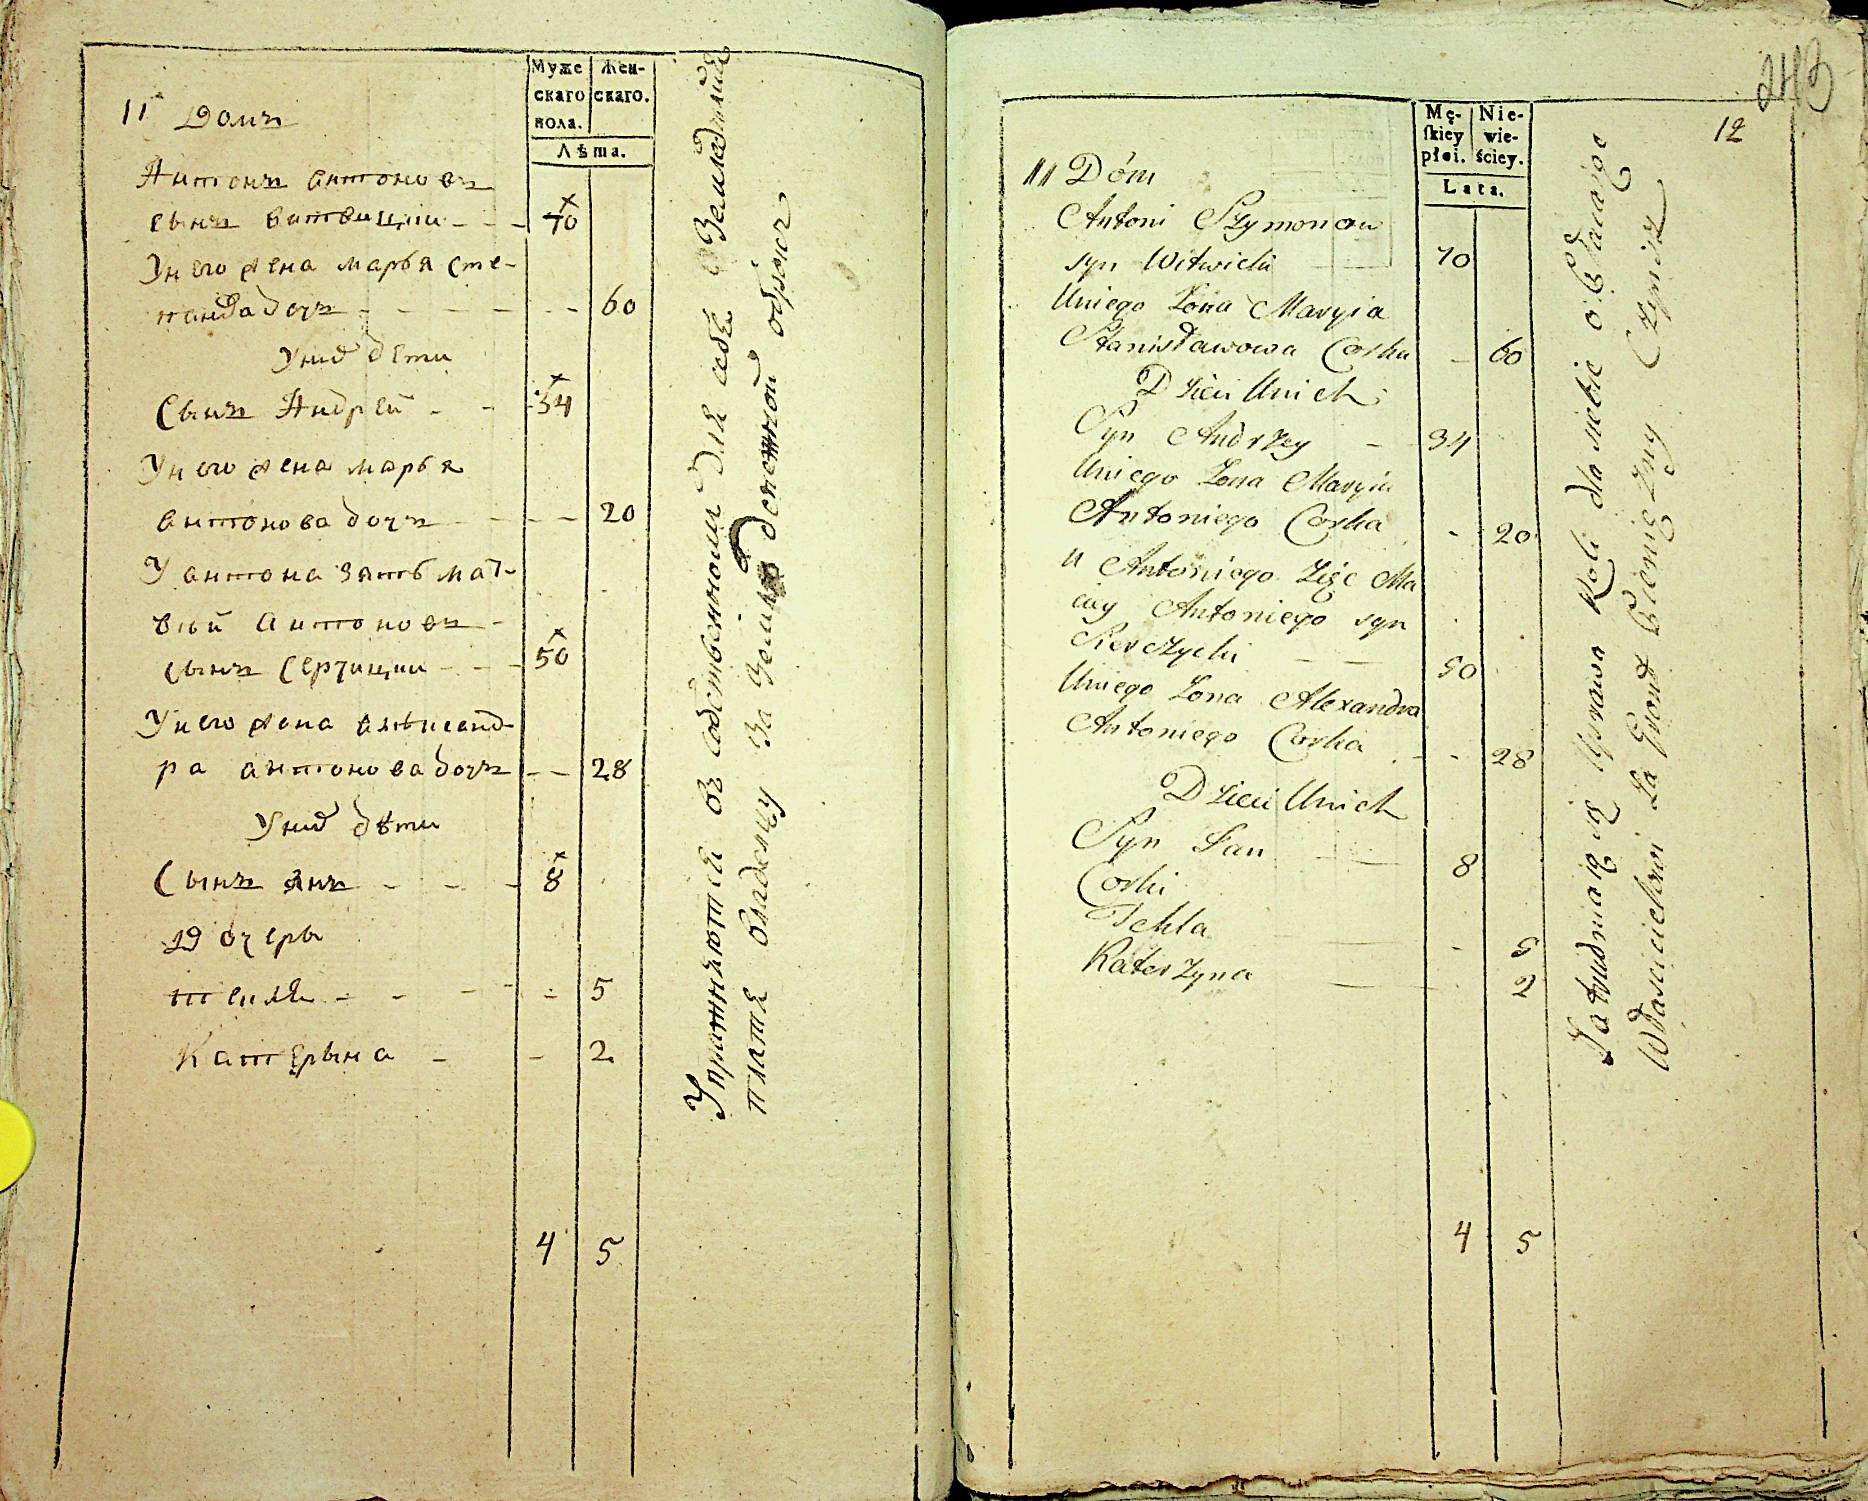 Муже Жен-
скаго скаго.
пола.
Лѣта.
11 Домъ
Антонъ антоновъ
сынъ витвицкии - - - 70
У него жена марья сте-
панова дочъ - - - - - 60
У них дети
Сынъ Андрей - - 34
У него жена марья
антонова дочъ - - - - 20
У антона зять мат-
вѣй антоновъ -
сынъ Серчицкии - - - 50
У него жена алѣксанд-
ра антонова дочъ - - 28
У них дѣти
Сынъ янъ - - - 8
Дочеры
текля - - - - 5
Катерына - - 2
4 5
Упражняются въ собственномъ для себя земледелии
платя владелцу за землю денежной оброкъ
243
12
Mę- Nie-
skiey wie-
płci. ściey.
Lata.
11 Dóm
Antoni Szymonow
syn Witwicki 70
Uniego Żona Maryia
Stanisławowa Corka - 60
Dzieci Unich
Syn Andrzey - 34
Uniego Żona Maryia
Antoniego Corka - 20
u Antoniego Zięc Ma
ciey Antoniego syn
Serczycki - - 50
Uniego Żona Alexandra
Antoniego Corka - - 28
Dzieci Unich
Syn Jan - - 8
Corki
Tekla - - 5
Katerzyna - - 2
4 5
Zatrudniaią się Uprawą Roli dla siebie opłacaiąc
Właścicielowi za Gront Pieniężny Czynsz